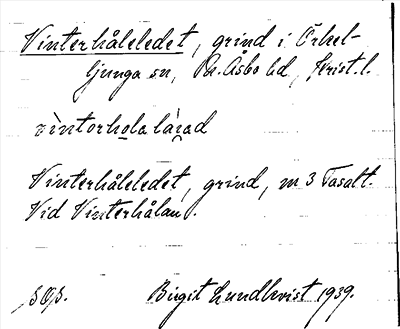 Vinterhåleledet, grind i Örkel-
ljunga sn, N. Åsbo hd, Krist. l.
vìntorhola láʒad
Vinterhåleledet, grind, m 3 Fasalt.
Vid Vinterhålan.
Birgit Lundkvist 1939.